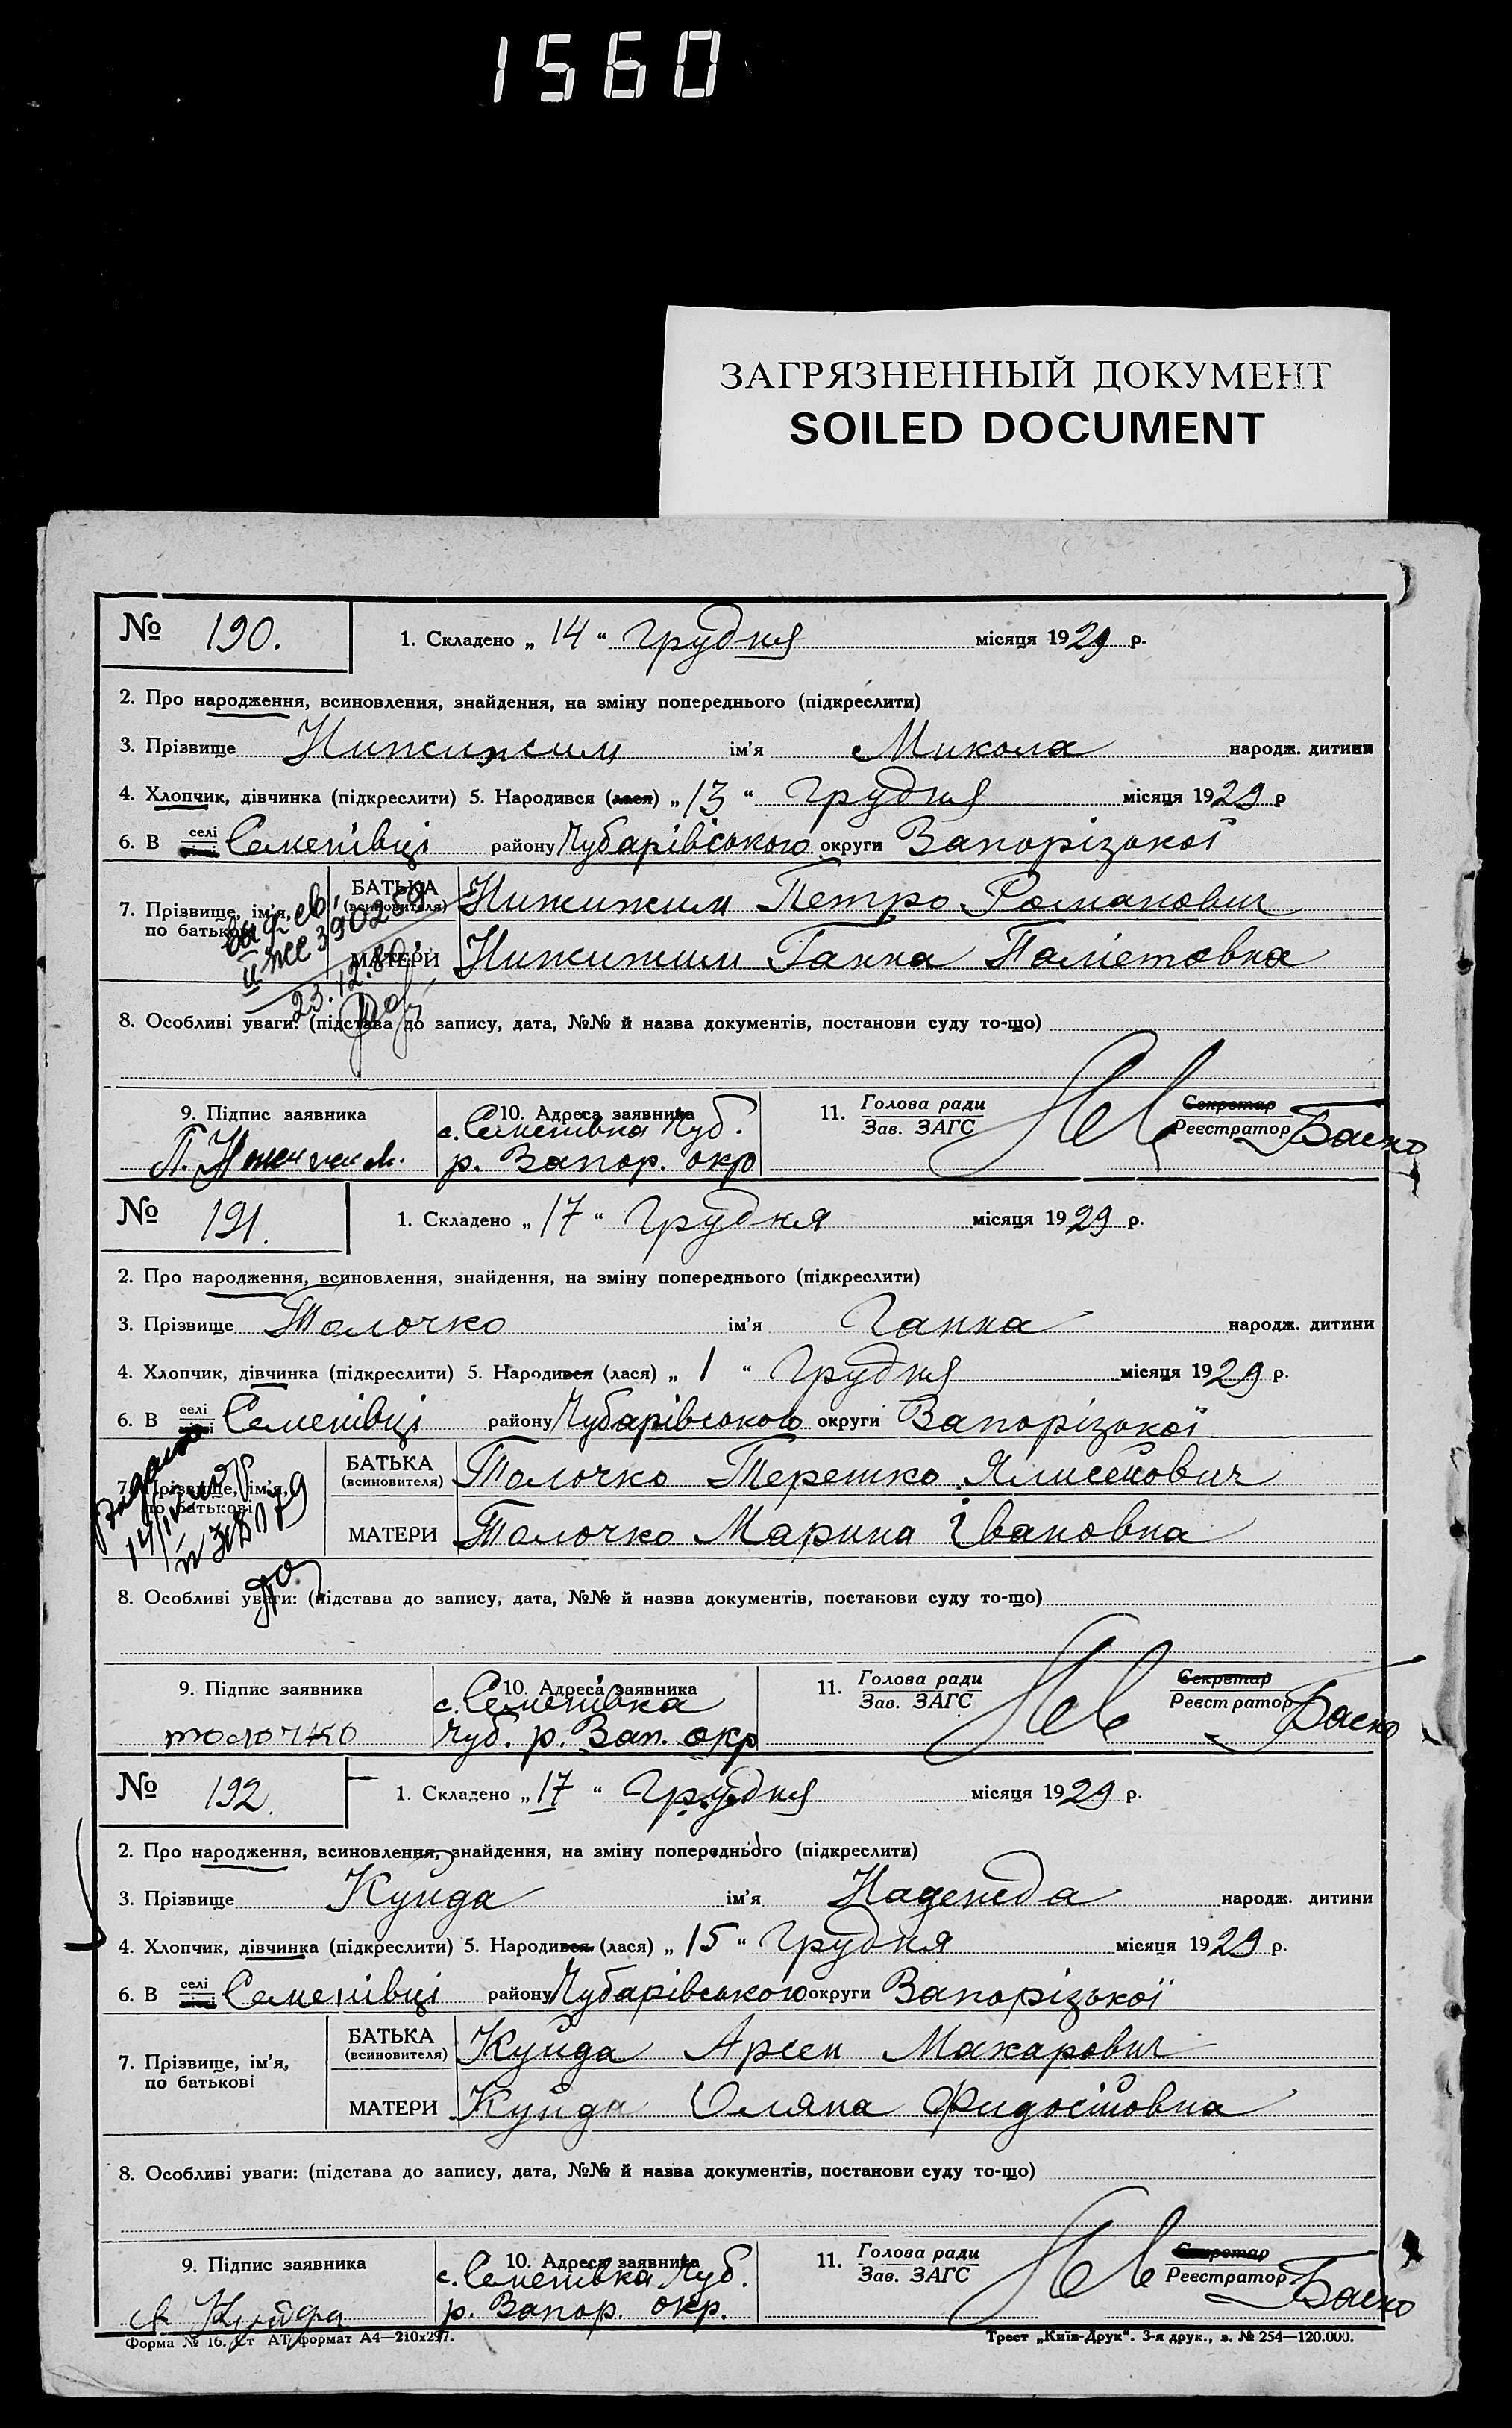 1560
ЗАГРЯЗНЕННЫЙ ДОКУМЕНТ
SOILED DOCUMENT
№ 190. 1. Складено „ 14 “ Грудня місяця 1929 р.
2. Про народження, всиновлення, знайдення, на зміну попереднього (підкреслити)
3. Прізвище Нижижим ім'я Микола народж. дитини
4. Хлопчик, дівчинка (підкреслити) 5. Народився (лася) „ 13 “ Грудня місяця 1929 р
6. В селі Семенівці району Чубарівського округи Запорізької
7. Прізвище, ім'я, по батькові
БАТЬКА (всиновителя) Нижижим Петро Романович
МАТЕРИ Нижижим Ганна
390259
23.12.
8. Особливі уваги: (підстава до запису, дата, №№ й назва документів, постанови суду то-що)
9. Підпис заявника 10. Адреса заявника 11. Голова ради Зав. ЗАГС Секретар Реєстратор Баско
с. Семенівка Чуб.
р. Запор. окр
№ 191. 1. Складено „ 17 “ Грудня місяця 1929 р.
2. Про народження, всиновлення, знайдення, на зміну попереднього (підкреслити)
3. Прізвище Толочко ім'я Ганна народж. дитини
4. Хлопчик, дівчинка (підкреслити) 5. Народився (лася) „ 1 “ Грудня місяця 1929 р.
6. В селі Семенівці району Чубарівського округи Запорізької
7. Прізвище, ім'я, по батькові
БАТЬКА (всиновителя) Толочко Терешко Ялисейович
МАТЕРИ Толочко Марина Івановна
8. Особливі уваги: (підстава до запису, дата, №№ й назва документів, постанови суду то-що)
9. Підпис заявника 10. Адреса заявника 11. Голова ради Зав. ЗАГС Секретар Реєстратор Баско
с. Семенівка
толочко Чуб. р. Зап. окр
№ 192. 1. Складено „ 17 “ Грудня місяця 1929 р.
2. Про народження, всиновлення, знайдення, на зміну попереднього (підкреслити)
3. Прізвище Куйда ім'я Надежда народж. дитини
4. Хлопчик, дівчинка (підкреслити) 5. Народився (лася) „ 15 “ Грудня місяця 1929 р.
6. В селі Семенівці району Чубарівського округи Запорізької
7. Прізвище, ім'я, по батькові
БАТЬКА (всиновителя) Куйда Арсен Макарович
МАТЕРИ Куйда Оляна Фидосіиовна
8. Особливі уваги: (підстава до запису, дата, №№ й назва документів, постанови суду то-що)
9. Підпис заявника 10. Адреса заявника 11. Голова ради Зав. ЗАГС Секретар Реєстратор Баско
с. Семенівка Чуб.
А Куйда р. Запор. окр.
Форма № 16. Ст АТ формат А4—210х297. Трест „Київ-Друк“. 3-я друк., з. № 254—120.000.